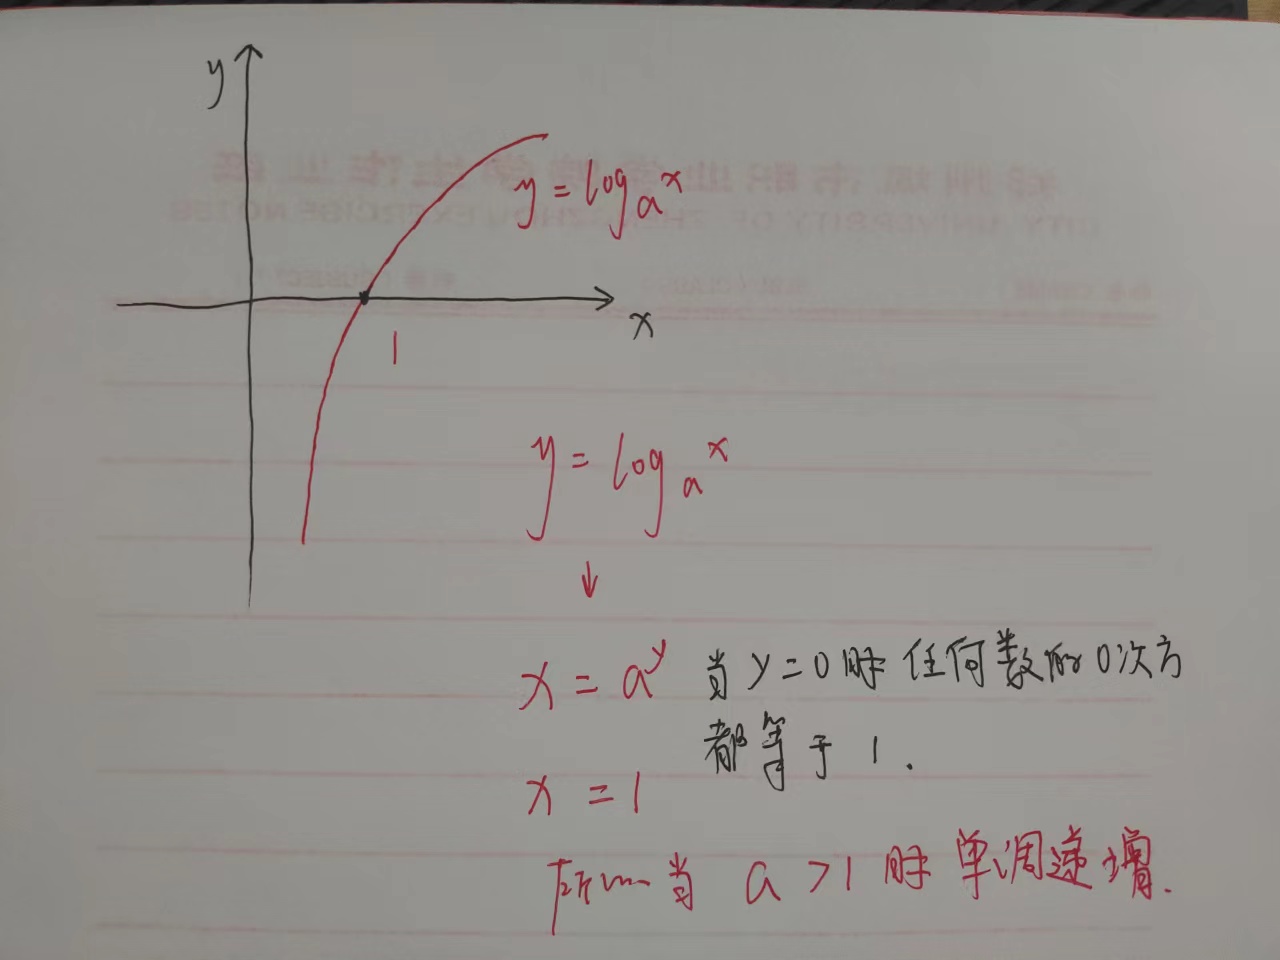 y
y = log_a^x
x
1
y = log_a^x
↓
x = a^y 当 y = 0 时 任何数的0次方
都等于 1.
x = 1
所以当 a > 1 时 单调递增.